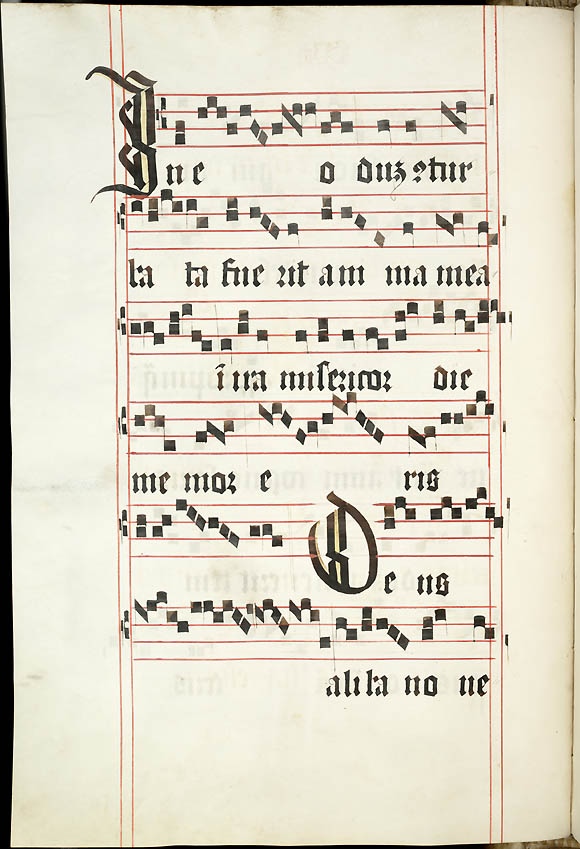 In e o duz ꝯtur
ba ta fue rit ani ma mea
ī ira misericor die
me mor e ris
De us
a li ba no ue